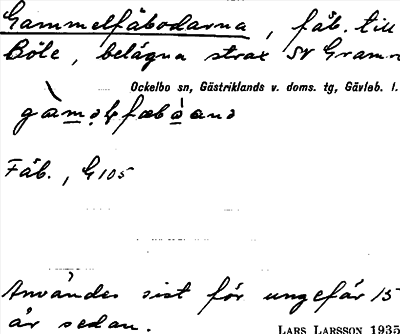 Gammelfäbodarna, fäb. till
Böle, belägna strax SV Gramm
Ockelbo sn, Gästriklands v. doms. tg, Gävleb. l.
Fäb., G 105
Användes sist för ungefär 15
år sedan.
LARS LARSSON 1935